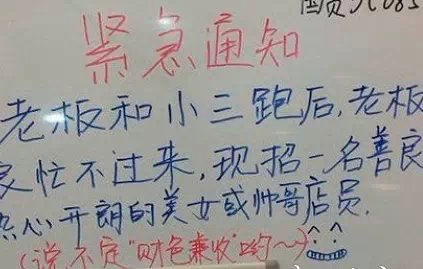 紧急通知
老板和小三跑后,老板
良忙不过来,现招一名善良
热心开朗的美女或帅哥店员.
(说不定"财色兼收"哟~)